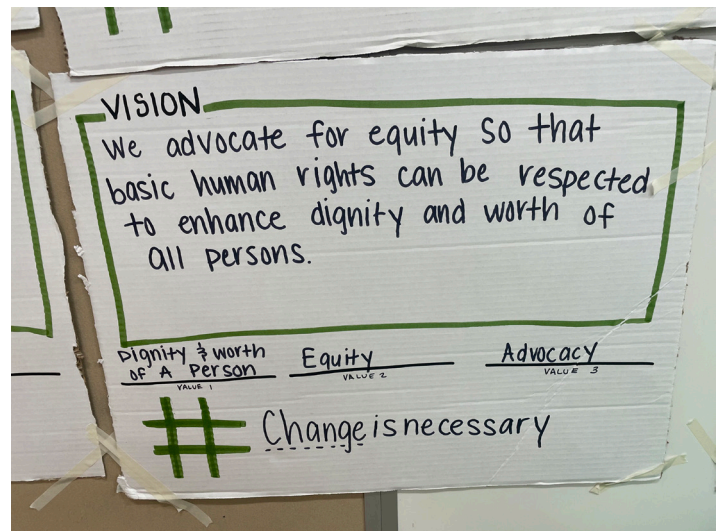 VISION
We advocate for equity so that
basic human rights can be respected
to enhance dignity and worth of
all persons.
Dignity & worth
of A Person
VALUE 1
Equity
VALUE 2
Advocacy
VALUE 3
# Changeisnecessary